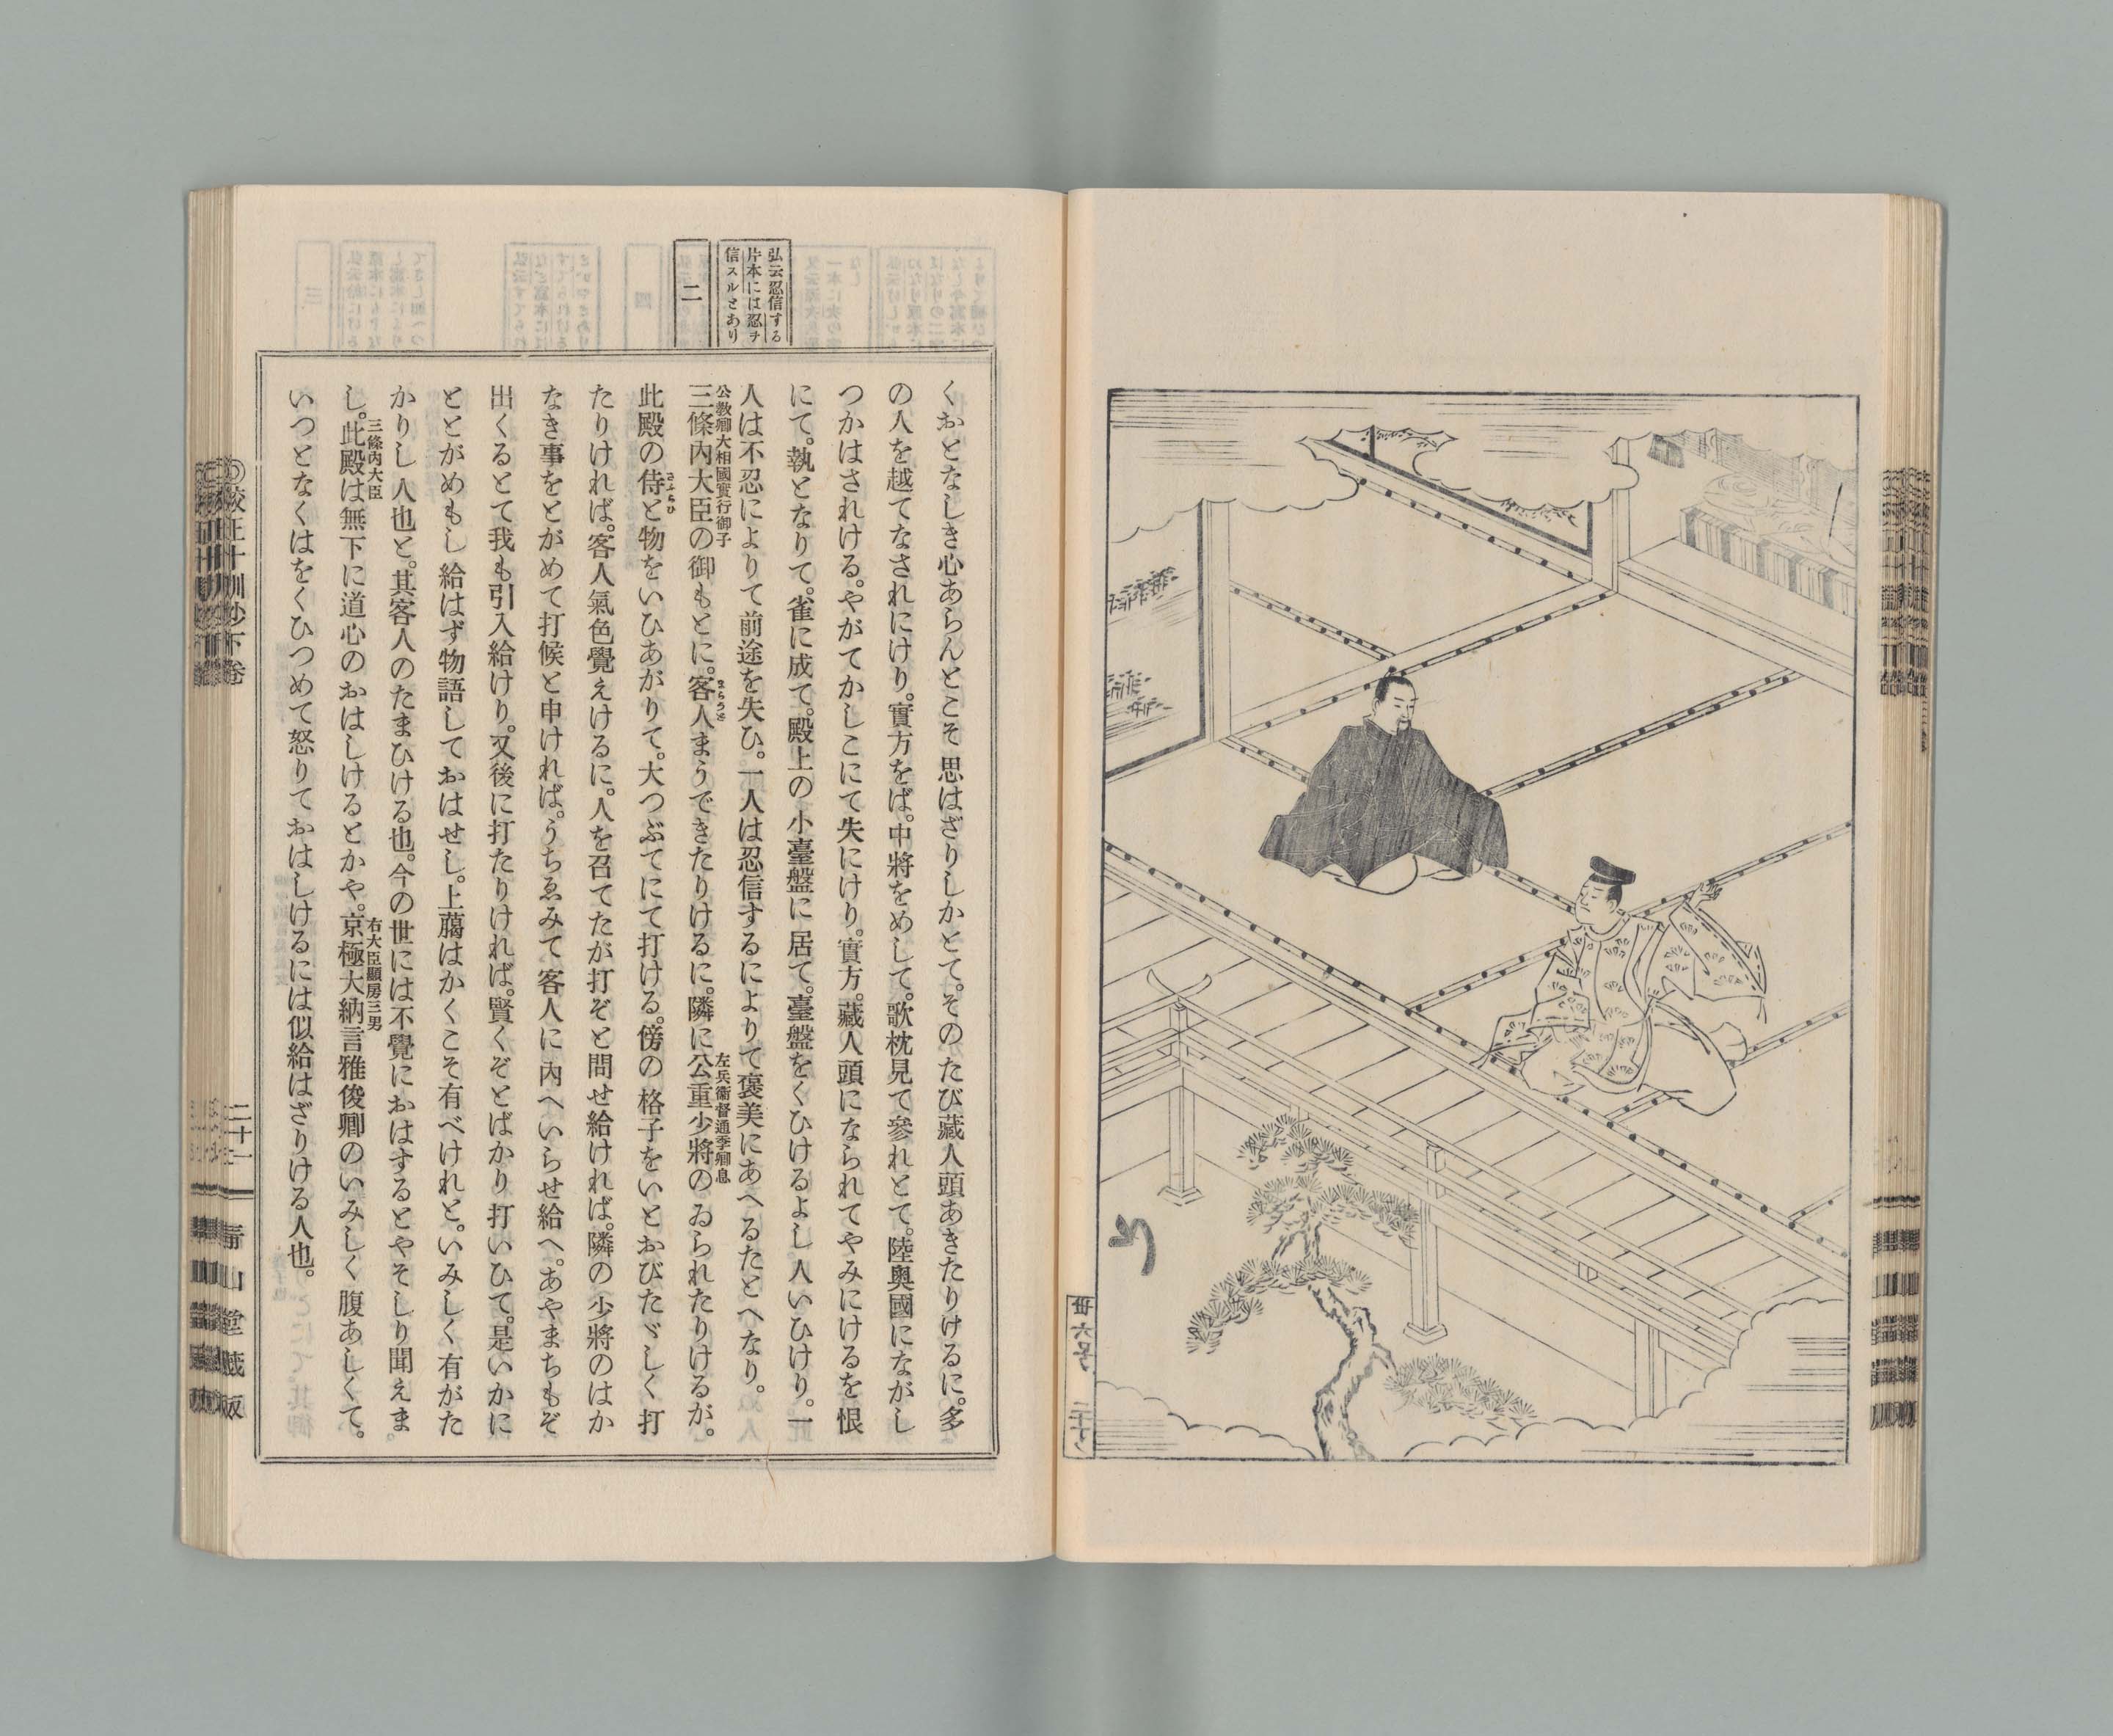 卅六号 二十ノ
弘云忍信する
片本には忍ヲ
信スルとあり
二
くおとなしき心あらんとこそ思はざりしかとて。そのたび藏人頭あきたりけるに。多
の人を越てなされにけり。實方をば。中將をめして。歌枕見て參れとて。陸奥國にながし
つかはされける。やがてかしこにて失にけり。實方。藏人頭になられてやみにけるを恨
にて。執となりて。雀に成て。殿上の小臺盤に居て。臺盤をくひけるよし人いひけり。一
人は不忍によりて前途を失ひ。一人は忍信するによりて褒美にあへるたとへなり。
公教卿大相國實行御子
左兵衞督通季卿息
三條內大臣の御もとに。客人まうできたりけるに。隣に公重少將のゐられたりけるが。
まらうど
此殿の侍と物をいひあがりて。大つぶてにて打ける。傍の格子をいとおびたゞしく打
さふらひ
たりければ。客人氣色覺えけるに。人を召てたが打ぞと問せ給ければ。隣の少將のはか
なき事をとがめて打候と申ければ。うちゑみて客人に內へいらせ給へ。あやまちもぞ
出くるとて我も引入給けり。又後に打たりければ。賢くぞとばかり打いひて。是いかに
ととがめもし給はず物語しておはせし。上﨟はかくこそ有べけれと。いみしく有がた
かりし人也と。其客人のたまひける也。今の世には不覺におはするとやそしり聞えま
三條內大臣
右大臣顯房三男
し。此殿は無下に道心のおはしけるとかや。京極大納言雅俊卿のいみしく腹あしくて。
いつとなくはをくひつめて怒りておはしけるには似給はざりける人也。
◎校正十訓抄下卷
二十一
靑山堂藏版